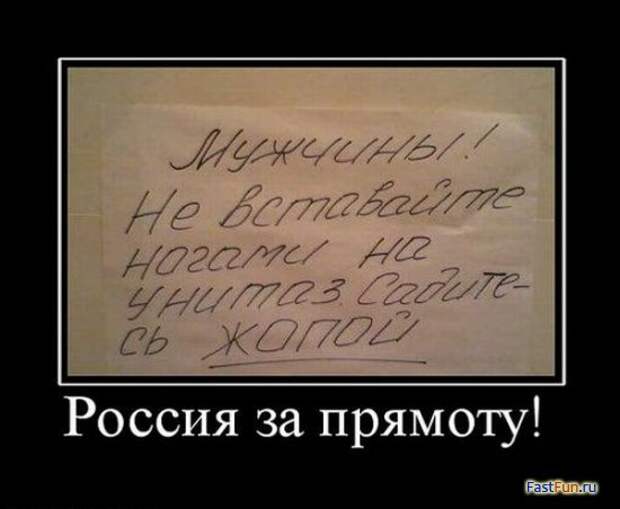 Мужчины!
Не вставайте
ногами на
унитаз. Садите-
сь жопой
Россия за прямоту!
FastFun.ru